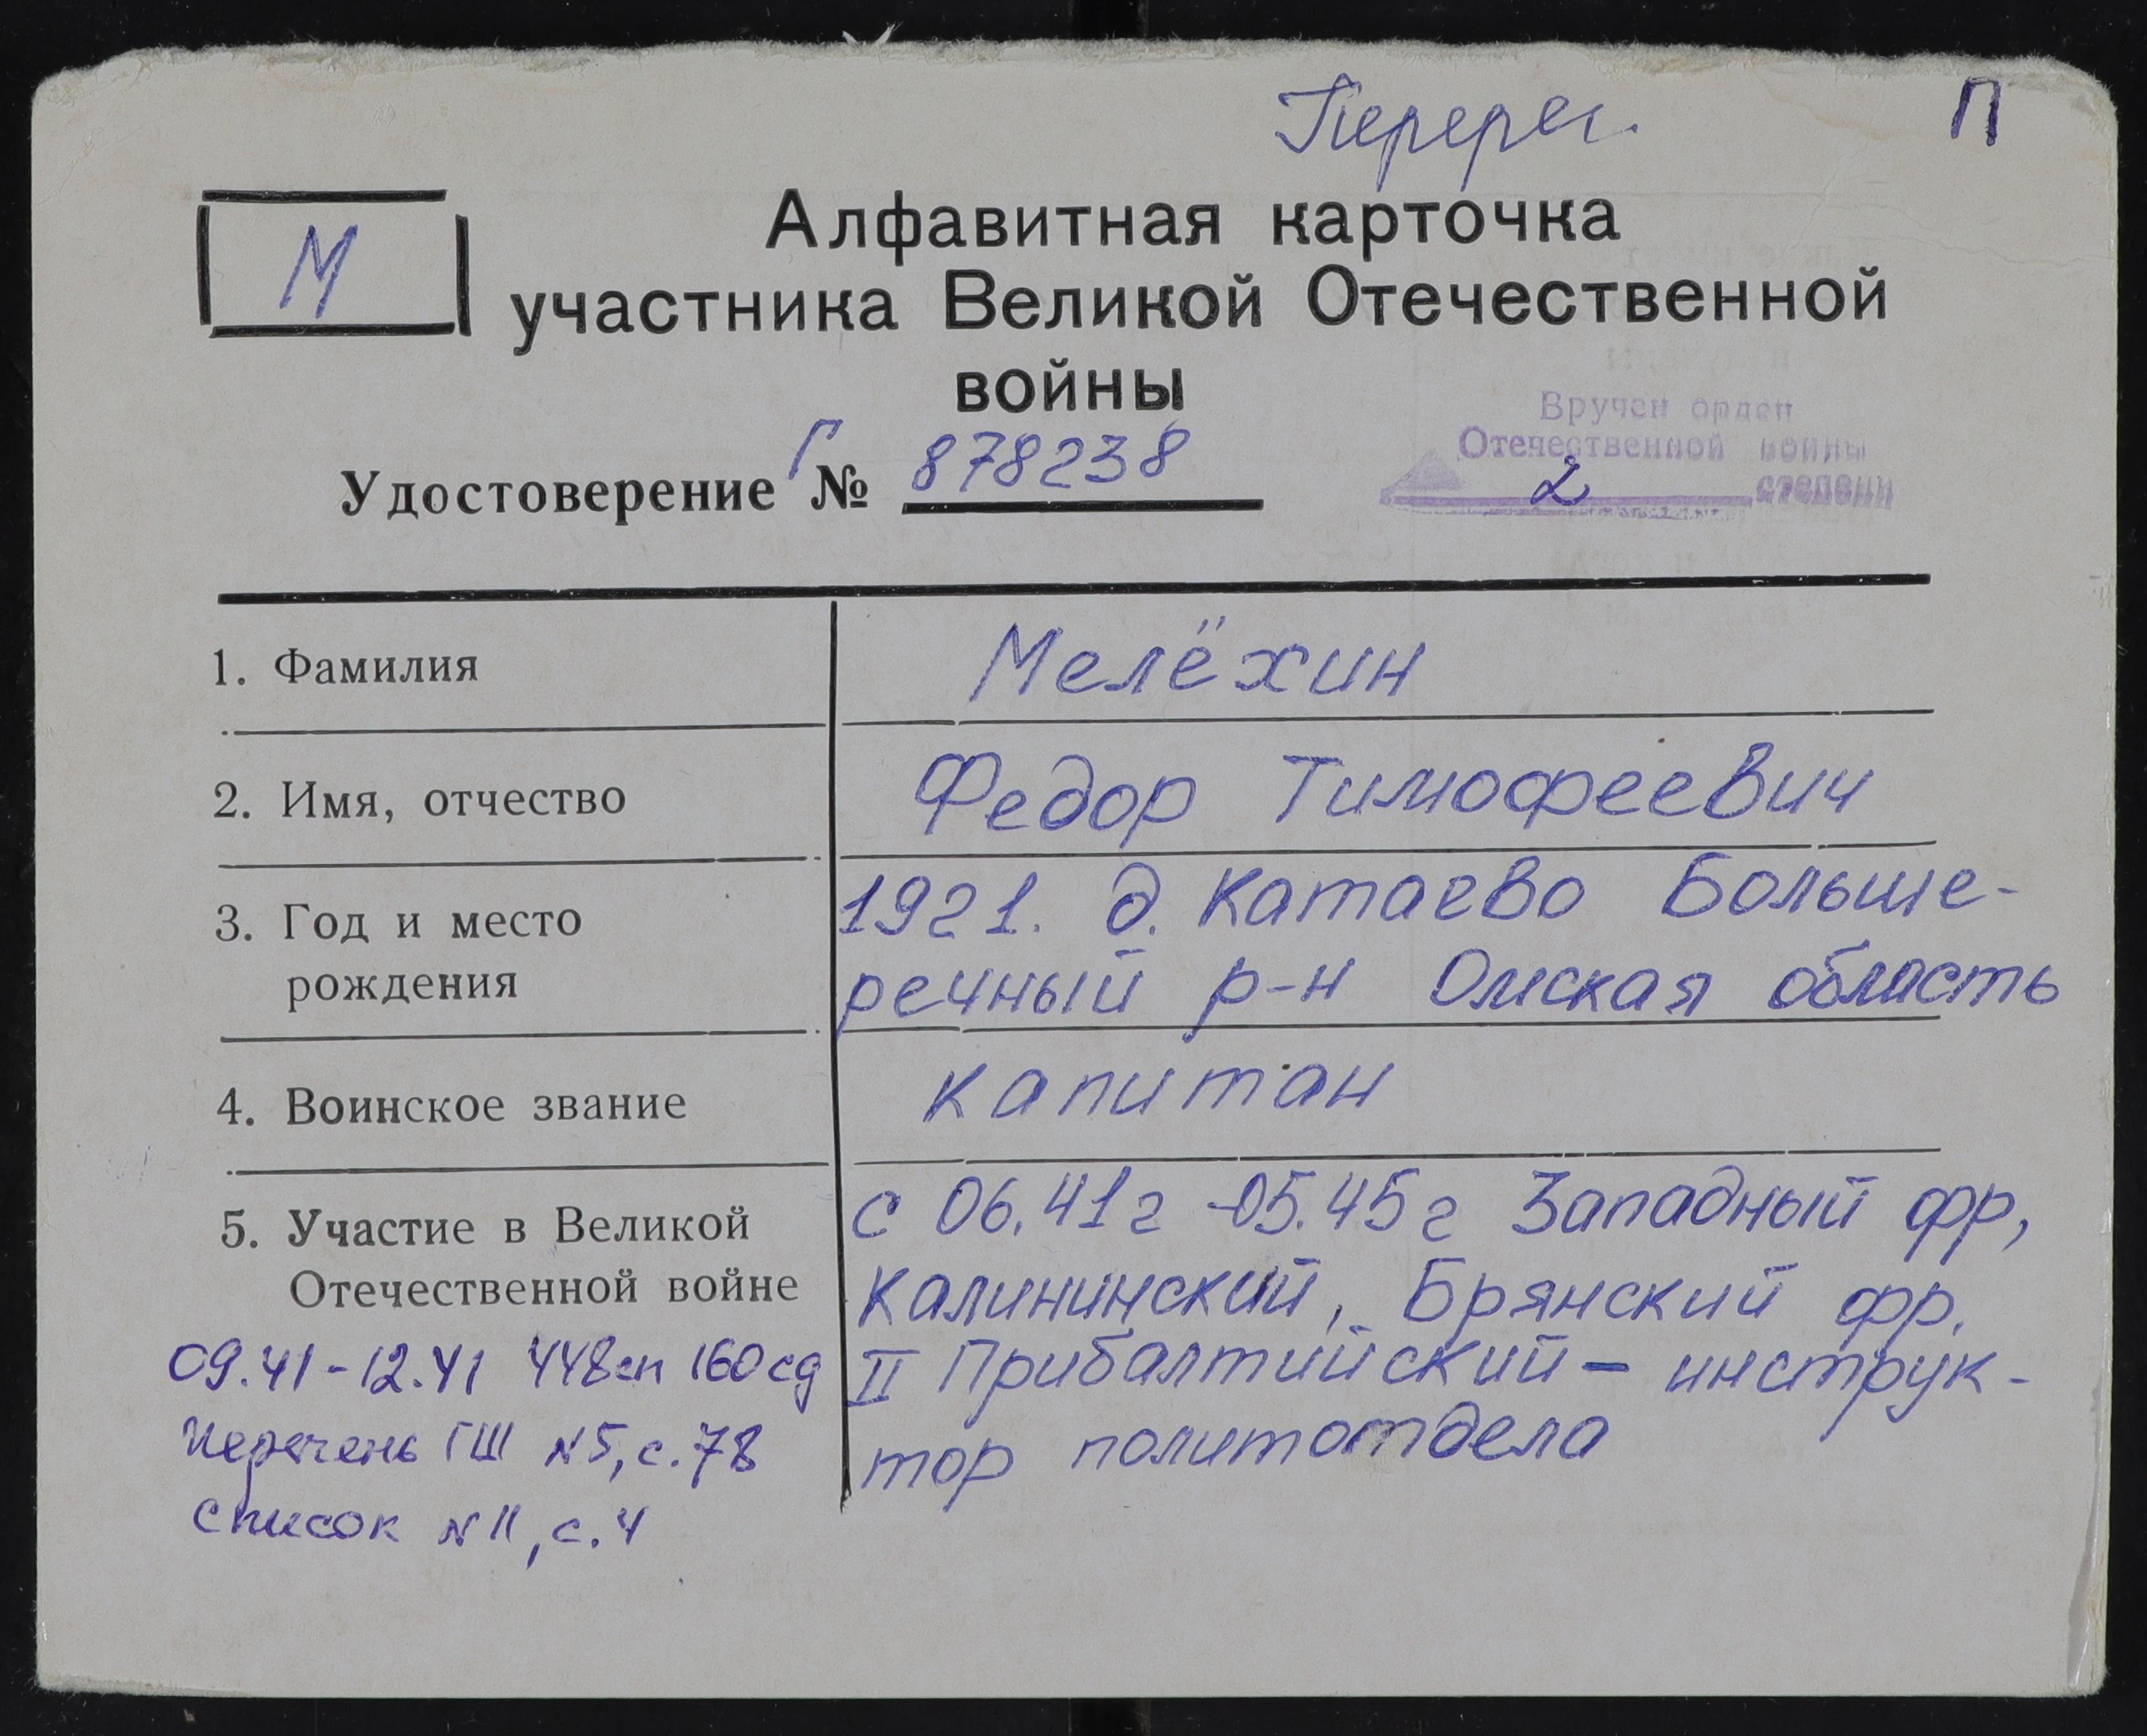 Перерег.
П
М
Алфавитная карточка
участника Великой Отечественной
войны
Удостоверение Г № 878238
Вручен орден
Отечественной войны
2 степени
1. Фамилия
Мелёхин
2. Имя, отчество
Федор Тимофеевич
3. Год и место
рождения
1921. д. Катаево Больше-
речный р-н Омская область
4. Воинское звание
капитан
5. Участие в Великой
Отечественной войне
с 06.41г -05.45г Западный фр,
Калининский, Брянский фр.
II Прибалтийский – инструк-
тор политотдела
09.41-12.41 448сп 160сд
Перечень ГШ №5, с.78
список №11, с.4